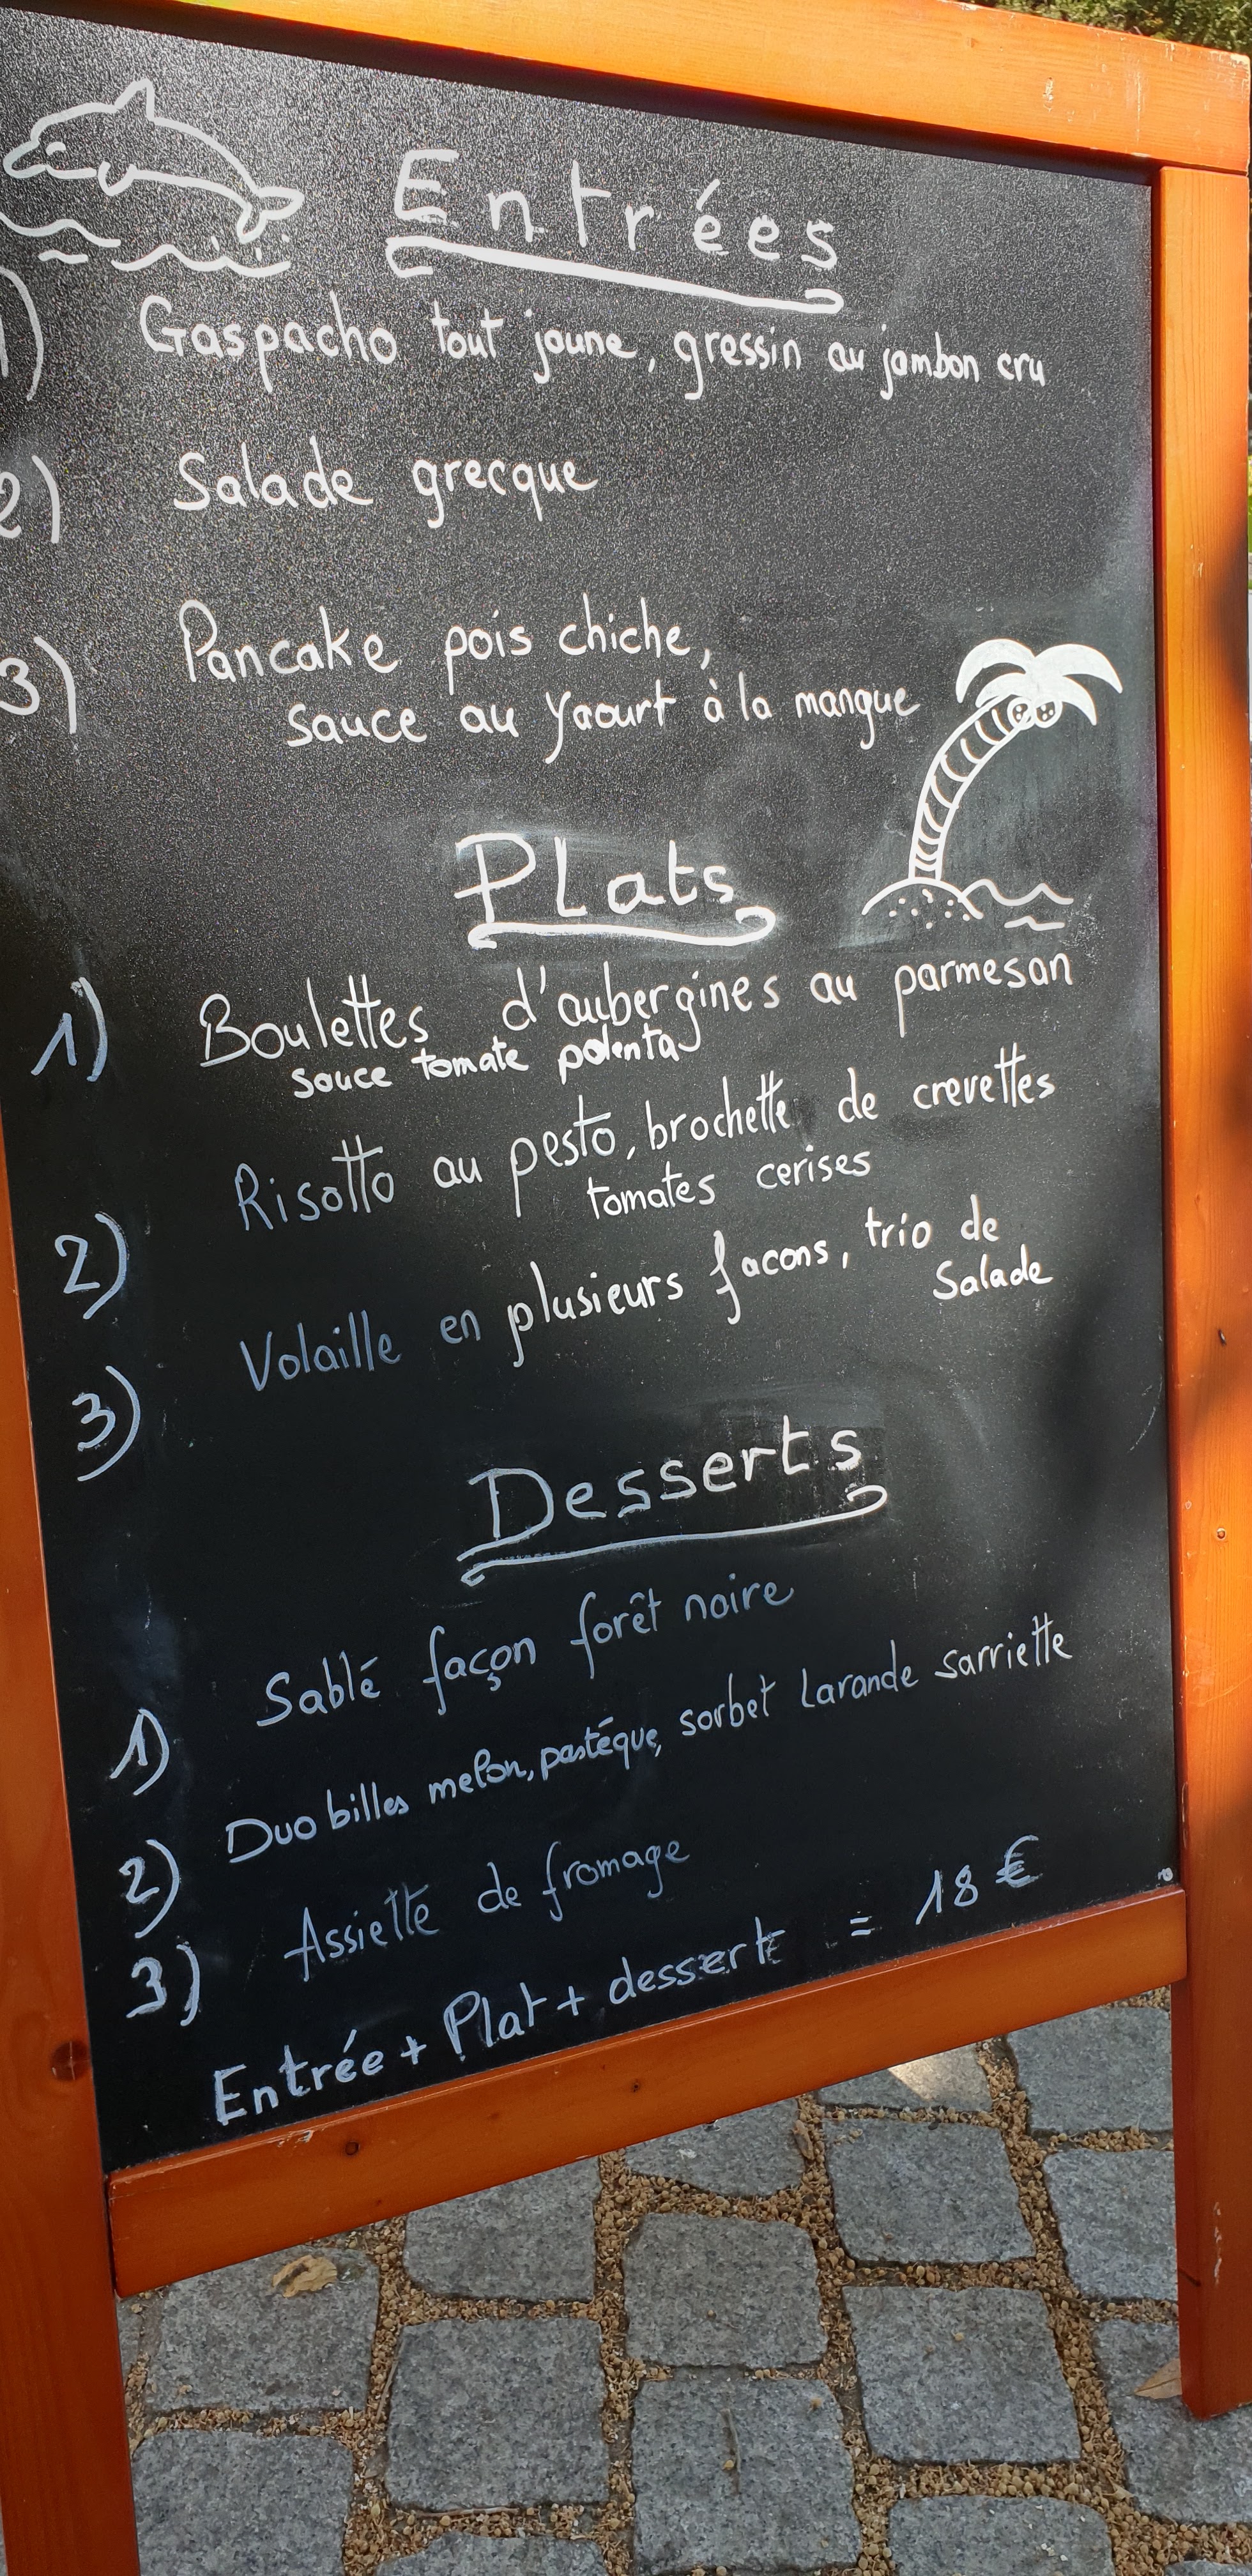 Entrées
1) Gaspacho tout jaune, gressin au jambon cru
2) Salade grecque
3) Pancake pois chiche,
sauce au yaourt à la mangue
Plats
1) Boulettes d'aubergines au parmesan
sauce tomate polenta
2) Risotto au pesto, brochette de crevettes
tomates cerises
3) Volaille en plusieurs facons, trio de
Salade
Desserts
1) Sablé façon forêt noire
2) Duo billes melon, pastéque, sorbet Larande sarriette
3) Assiette de fromage
Entrée + Plat + dessert = 18 €